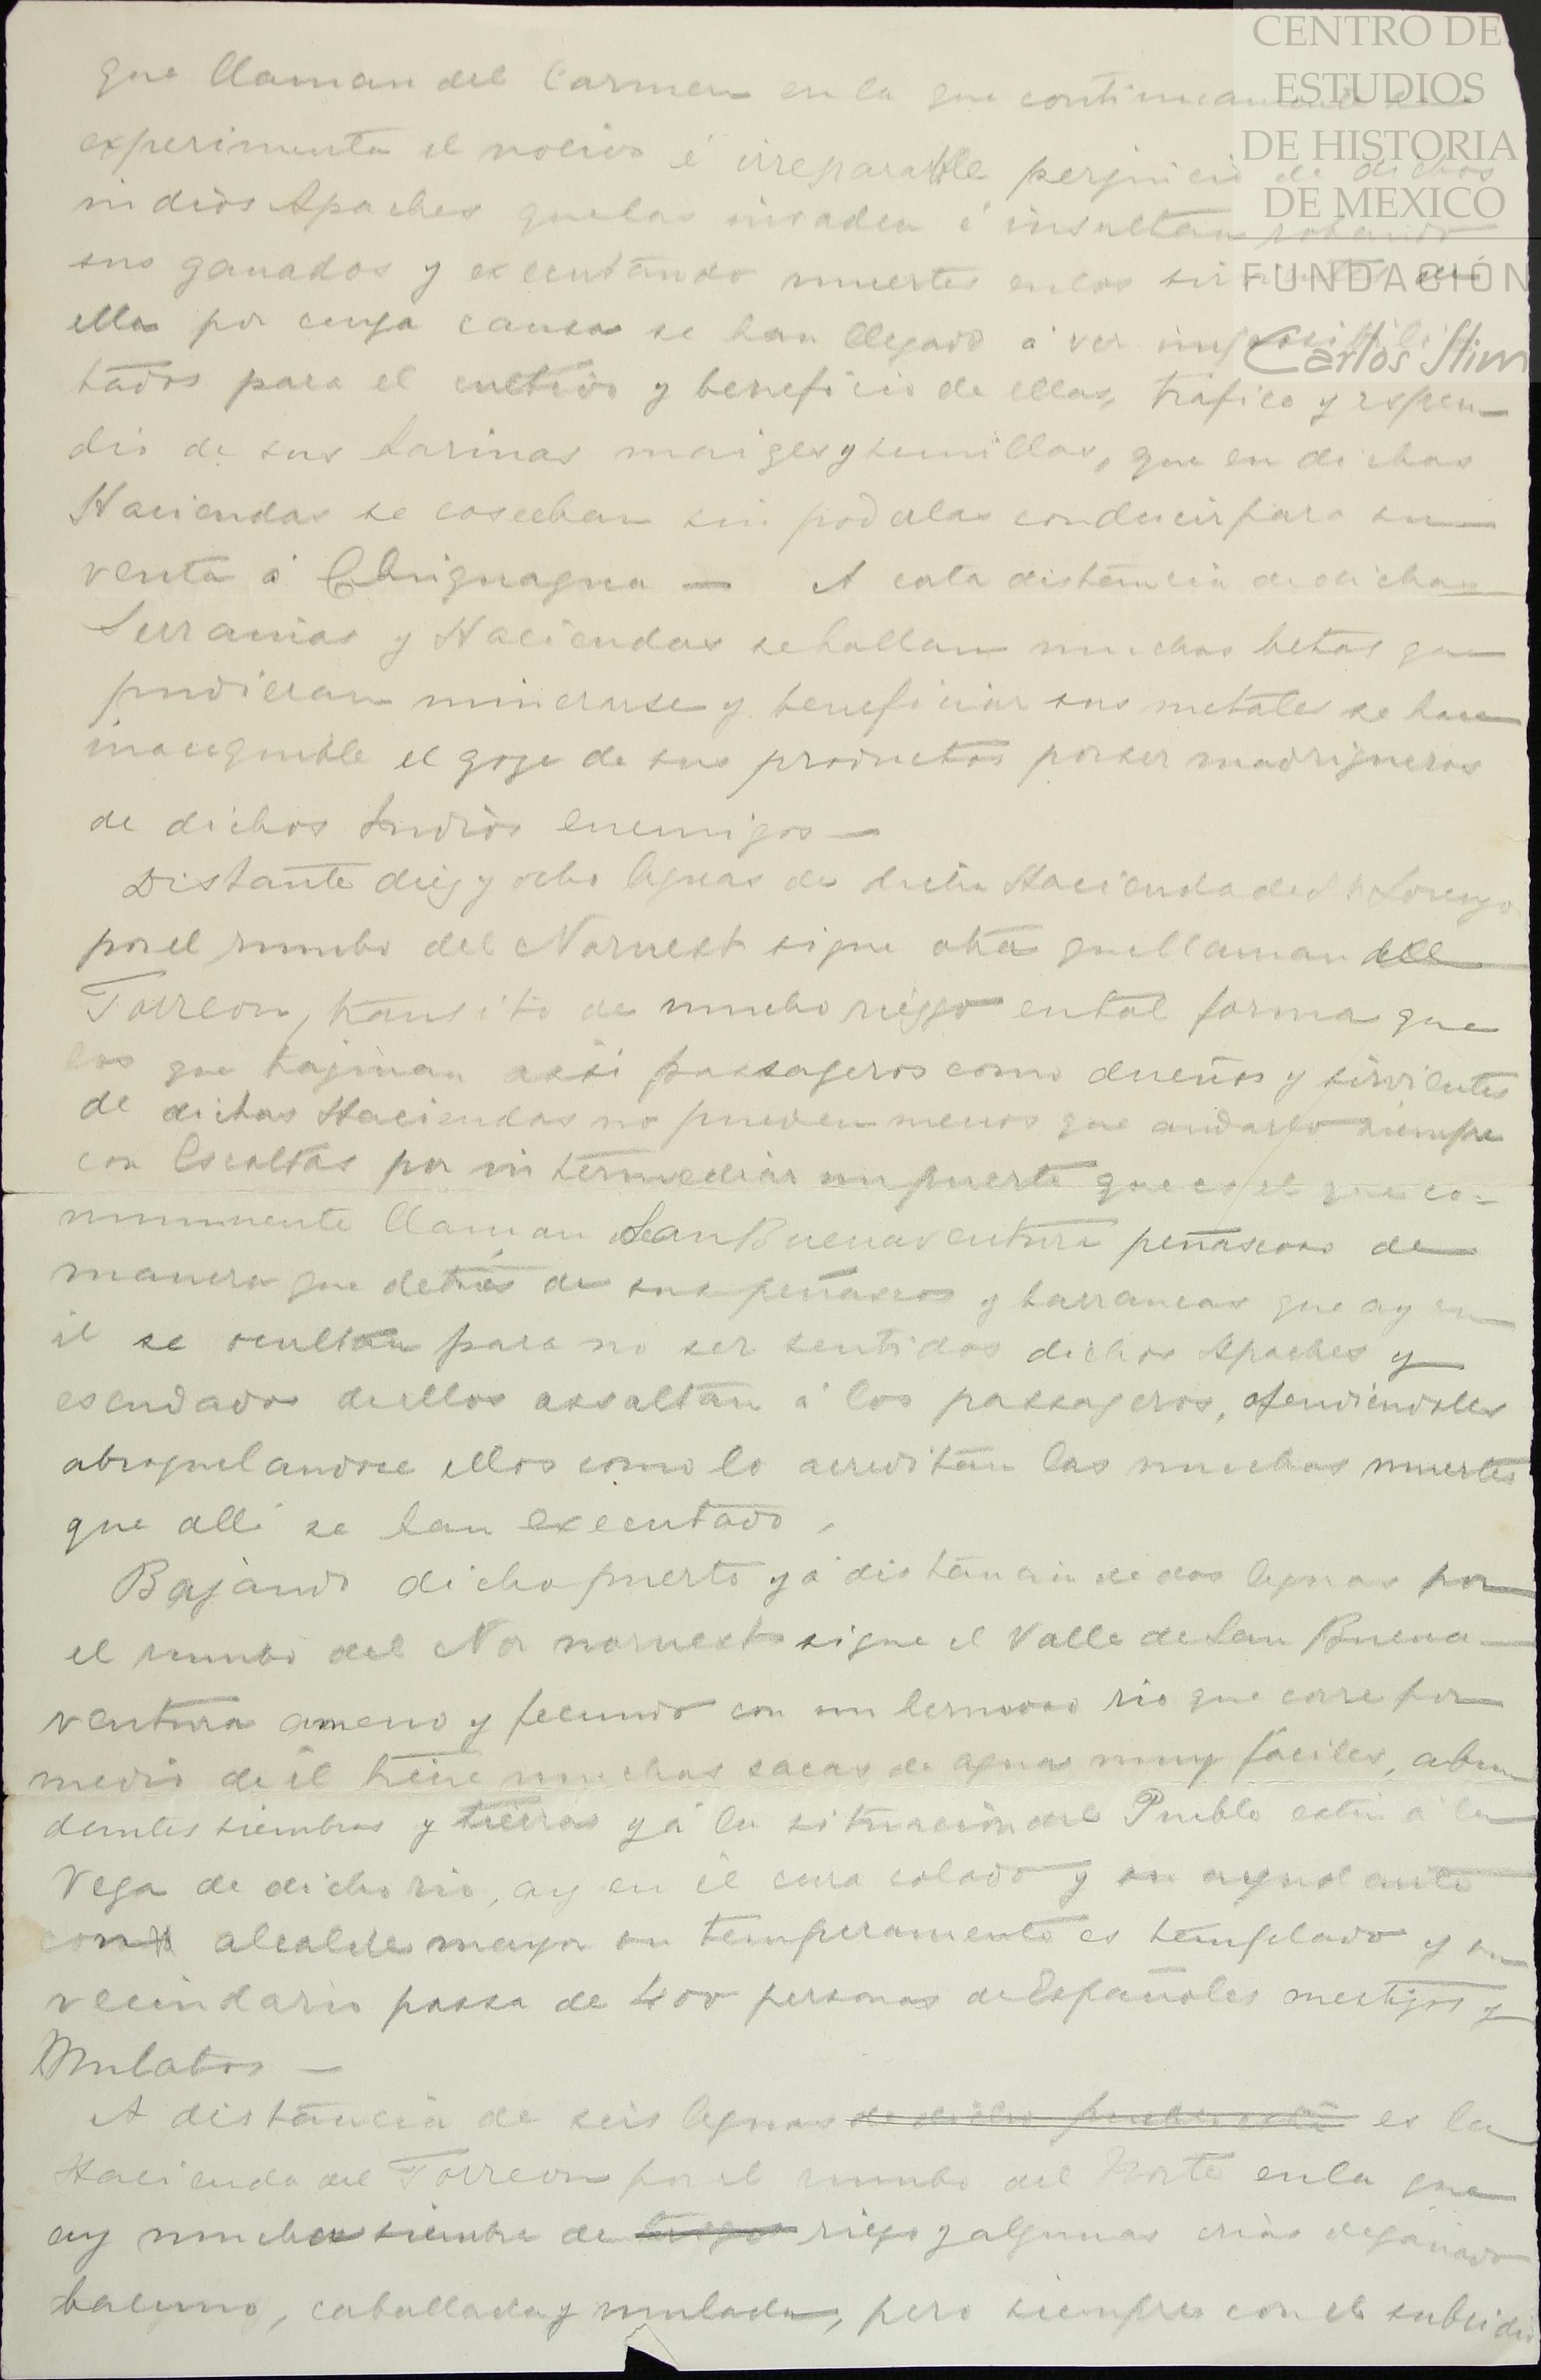 CENTRO DE
ESTUDIOS
DE HISTORIA
DE MEXICO
FUNDACIÓN
Carlos Slim
que llaman del Carmen en la que continuamente se
experimenta el nocivo é irreparable perjuicio de dichos
indios Apaches que las invaden é insultan robando
sus ganados y executando muertes en los sirvientes de
ellas por cuya causa se han llegado á ver imposibili
tados para el cultivo y beneficio de ellas, trafico y espen
dio de sus harinas maizes y semillas, que en dichas
Haciendas se cosechan sin poderlas conducir para su
venta á Chiguagua — A corta distancia de dichas
Serranias y Haciendas se hallan muchas betas que
pudieran minerarse y beneficiar sus metales se hace
inacequible el goze de sus productos por ser madrigueras
de dichos Indios enemigos —
Distante diez y ocho leguas de dicha Hacienda de Sn Lorenzo
por el rumbo del Noruest sigue otra que llaman del
Torreon, transito de mucho riesgo en tal forma que
los que trajinan assi passageros como dueños y sirvientes
de dichas Haciendas no pueden menos que andarlo siempre
con Escoltas por intermediar un puerto que es el que co-
munmente llaman San Buenaventura peñascoso de
manera que detrás de sus peñascos y barrancas que ay en
él se ocultan para no ser sentidos dichos Apaches y
escudados de ellos assaltan á los passageros, ofendiendoles
abroquelandose ellos como lo acreditan las muchas muertes
que alli se han executado.
Bajando dicho puerto y á distancia de dos leguas por
el rumbo del Nor noruest sigue el Valle de San Buena
ventura ameno y fecundo con un hermoso rio que corre por
medio de él tiene muchas sacas de aguas muy fáciles, abun
dantes siembras y tierras y á la situacion del Pueblo está á la
Vega de dicho rio, ay en él cura colado y su ayudante
con alcalde mayor su temperamento es templado y su
vecindario passa de 400 personas de Españoles mestizos y
Mulatos —
A distancia de seis leguas de dicho pueblo está es la
Hacienda del Torreon por el rumbo del Norte en la que
ay mucha siembra de trigo riego y algunas crias de ganado
bacuno, caballada y mulada, pero siempre con el subsidio